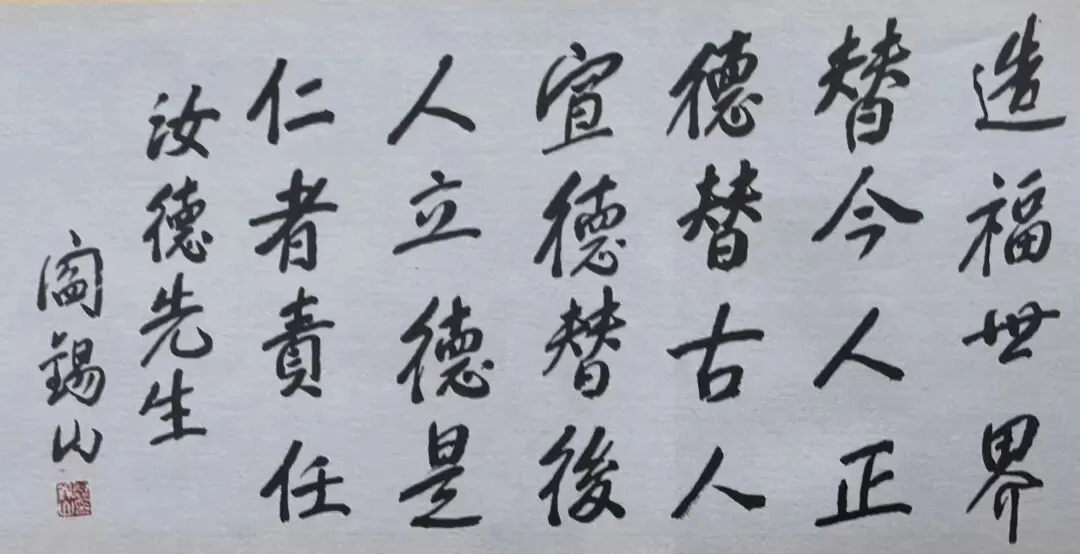 造福世界
替今人正
德替古人
宣德替後
人立德是
仁者責任
汝德先生
阎錫山